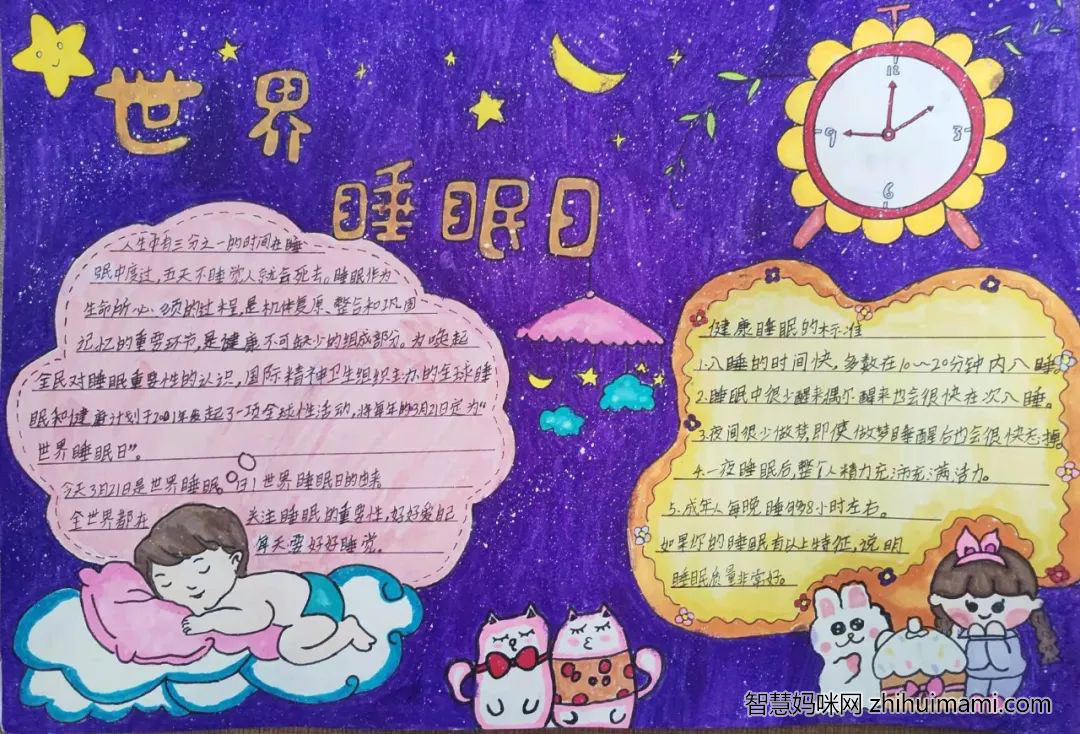 世界
睡眠日
12
3
6
9
人生中有三分之一的时间在睡
眠中度过，五天不睡觉人就会死去。睡眠作为
生命所必须的过程，是机体复原、整合和巩固
记忆的重要环节，是健康不可缺少的组成部分。为唤起
全民对睡眠重要性的认识，国际精神卫生组织主办的全球睡
眠和健康计划于2001年发起了一项全球性活动，将每年的3月21日定为“
世界睡眠日”。
今天3月21日是世界睡眠日！世界睡眠日的由来
全世界都在关注睡眠的重要性，好好爱自己
每天要好好睡觉。
健康睡眠的标准
1.入睡的时间快，多数在10～20分钟内入睡
2.睡眠中很少醒来偶尔醒来也会很快在次入睡。
3.夜间很少做梦，即使做梦睡醒后也会很快忘掉。
4.一夜睡眠后，整个人精力充沛充满活力。
5.成年人每晚睡够8小时左右。
如果你的睡眠有以上特征，说明
睡眠质量非常好。
智慧妈咪网 zhihuimami.com